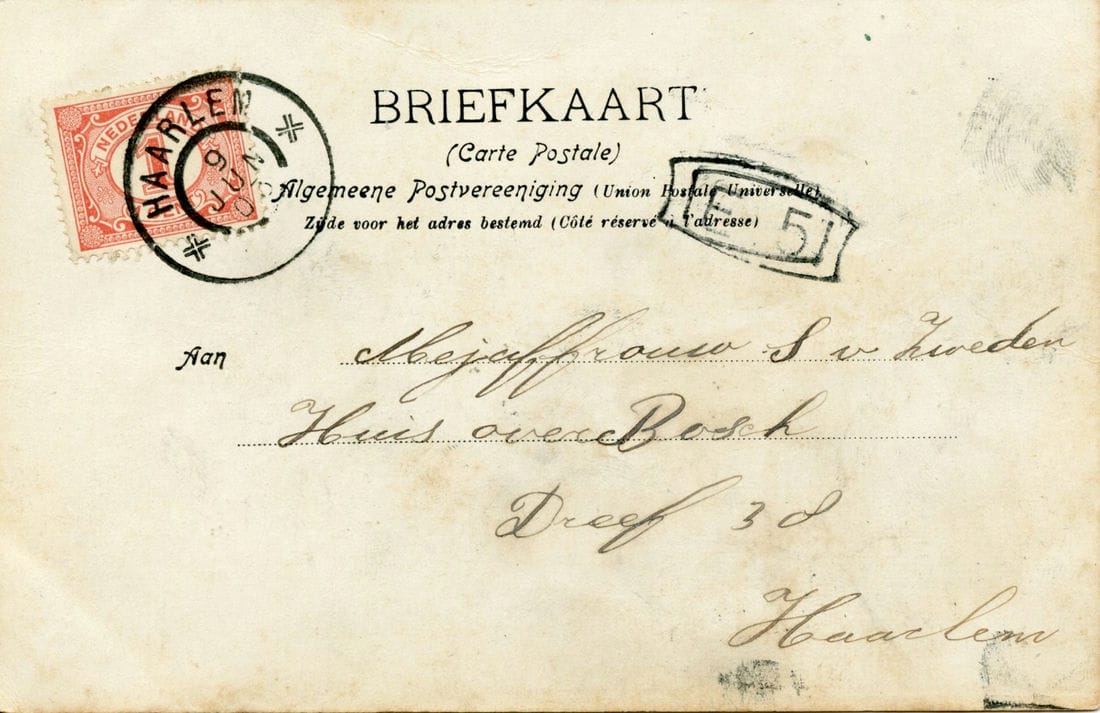 BRIEFKAART
(Carte Postale)
Algemeene Postvereeniging (Union Postale Universelle)
Zijde voor het adres bestemd (Côté réservé à l'adresse)
NEDERLAND
1
HAARLEM
9 JUN
E 5
Aan Mejaffrouw S v Zweden
Huis over Bosch
Dreef 38
Haarlem